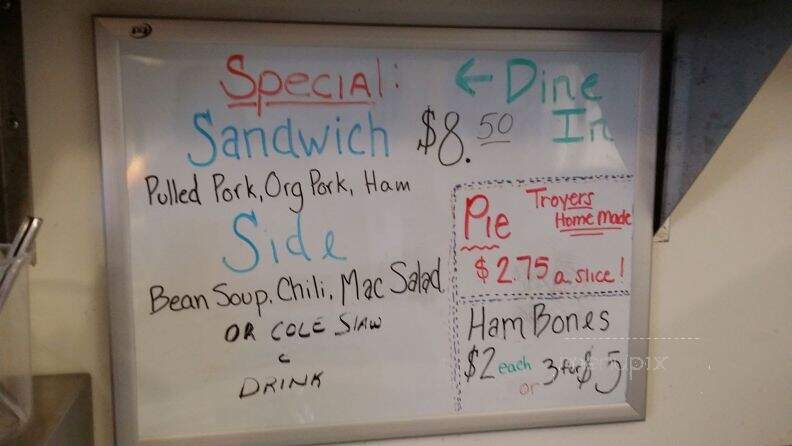 Special:
← Dine In
Sandwich $8.50
Pulled Pork, Org Pork, Ham
Side
Bean Soup, Chili, Mac Salad
OR COLE SLAW
C
DRINK
Pie Troyers Home Made
$2.75 a slice!
Ham Bones
$2 each or 3 for $5